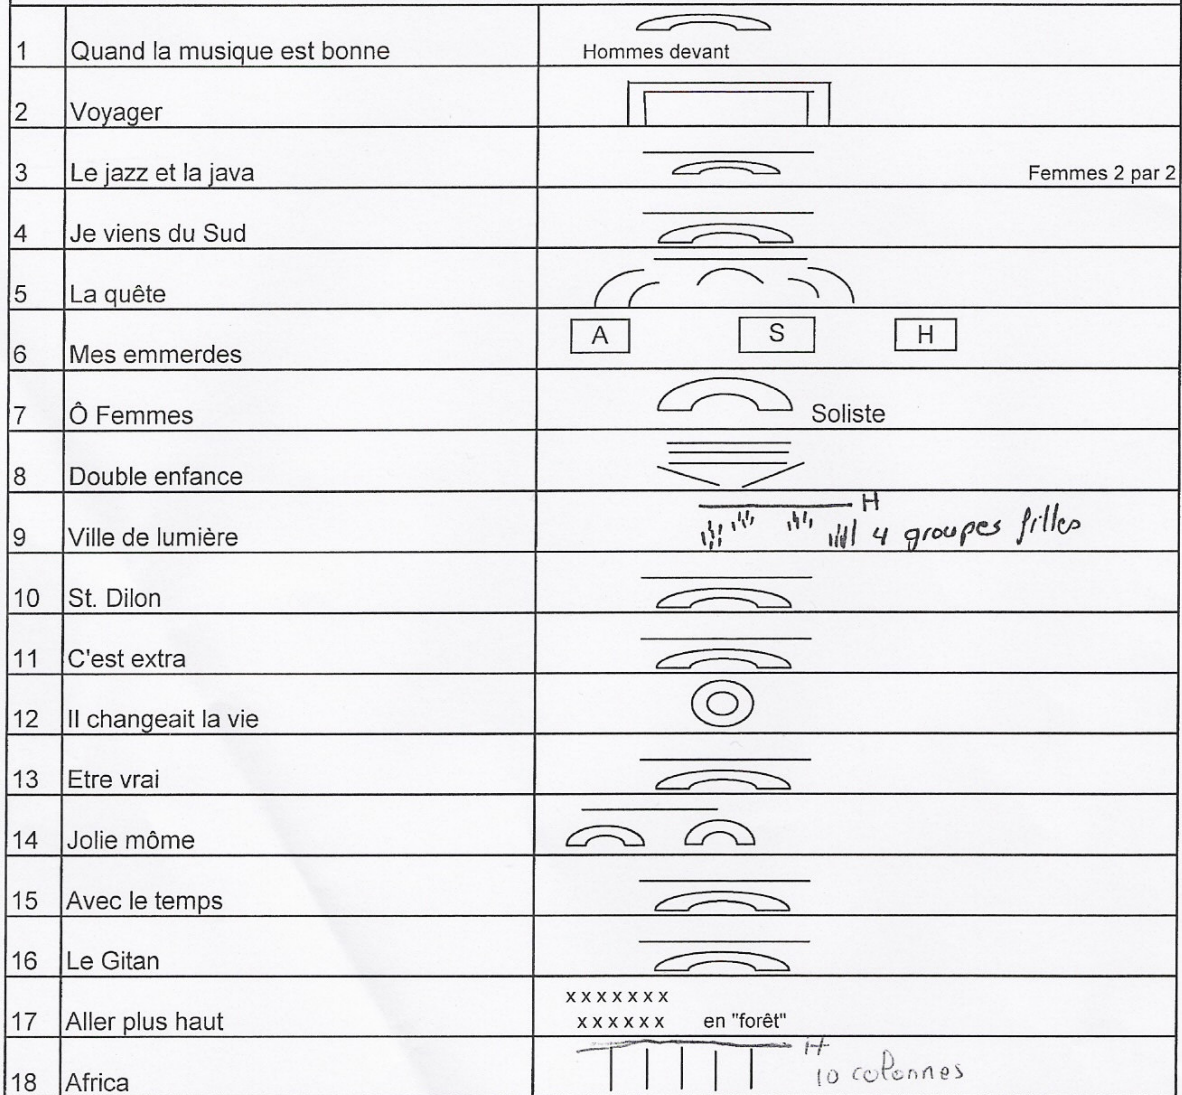 1 Quand la musique est bonne Hommes devant
2 Voyager
3 Le jazz et la java Femmes 2 par 2
4 Je viens du Sud
5 La quête
6 Mes emmerdes A S H
7 Ô Femmes Soliste
8 Double enfance
9 Ville de lumière H 4 groupes filles
10 St. Dilon
11 C'est extra
12 Il changeait la vie
13 Etre vrai
14 Jolie môme
15 Avec le temps
16 Le Gitan
x x x x x x x
17 Aller plus haut x x x x x x en "forêt"
18 Africa H 10 colonnes